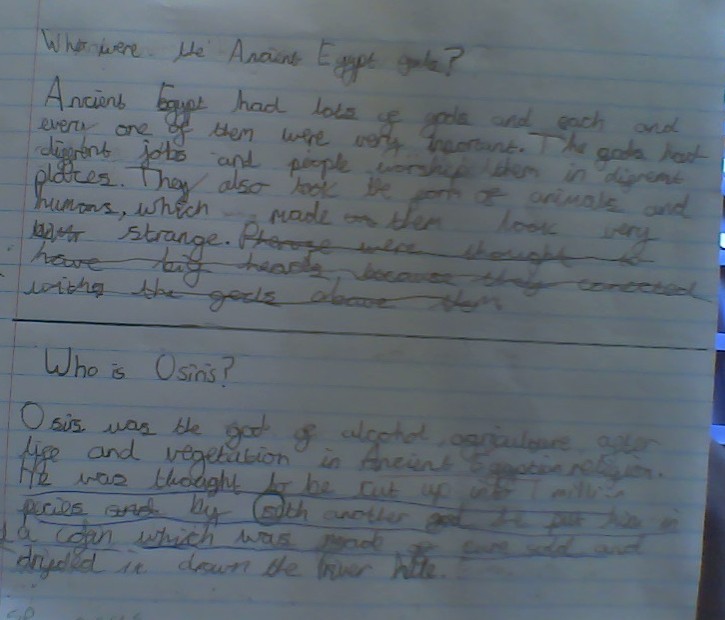 Who were the Ancient Egypt gods?
Ancient Egypt had lots of gods and each and
every one of them were very inportant. The gods had
difrent jobs and people worship them in difrent
places. They also took the form of animals and
humans, which made them look very
strange. were thought to
have big heads because they conected
withs the gods above them
Who is Osiris?
Osiris was the god of alcohol, agriculture, after
life and vegetation in Ancient Egyption religion.
He was thought to be cut up into 1 million
pecies and by Seth another god he put him in
a cofan which was made of pure gold and
it drown the river Nile.